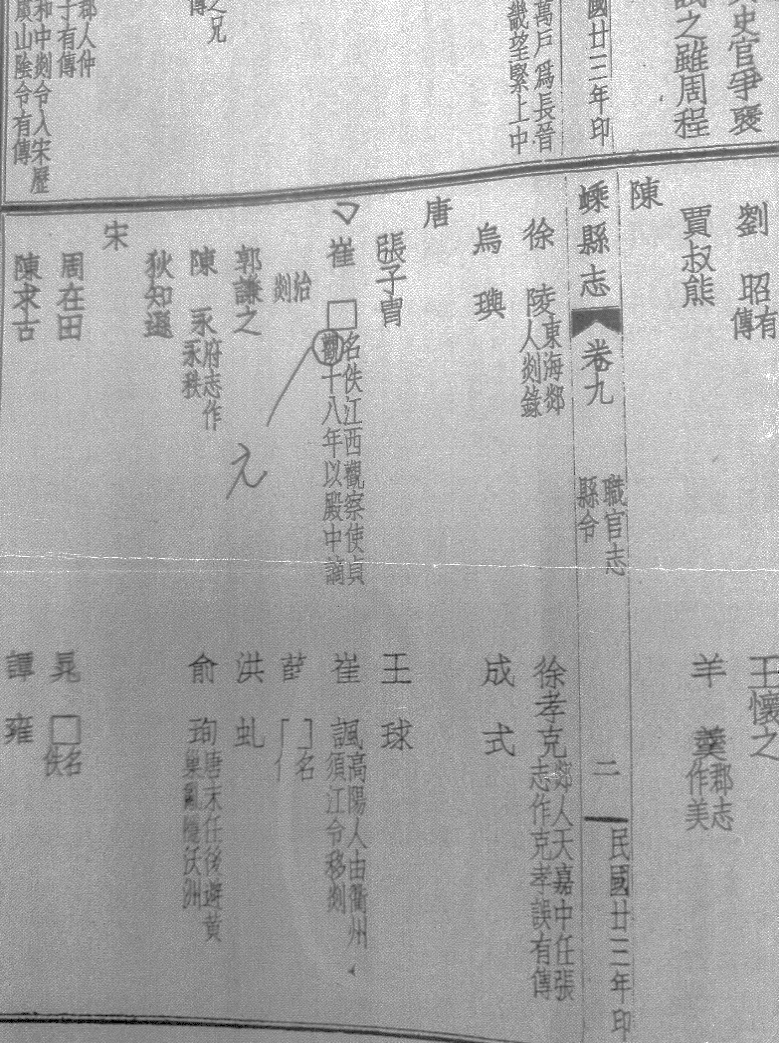 史官爭褒
試之雖周程
國廿三年印
萬戶爲長晉
畿望緊上中
之兄
傳
郡人仲
子有傳
和中剡令入宋歷
山陰令有傳
劉昭有傳
王懷之
賈叔熊
羊羹郡志作美
陳
嵊縣志
卷九
職官志
縣令
二
民國廿三年印
徐陵東海郯人剡錄
徐孝克郯人天嘉中任張志作克孝誤有傳
烏璵
成式
唐
張子冑
王球
崔□名佚江西觀察使貞觀十八年以殿中謫
給剡
元
崔諷高陽人由衢州須江令移剡
薛
名
郭謙之
洪虬
陳永府志作永秩
俞珣唐末任後避黃巢亂隱沃洲
狄知遜
宋
周在田
晁□名佚
陳求古
譚雍